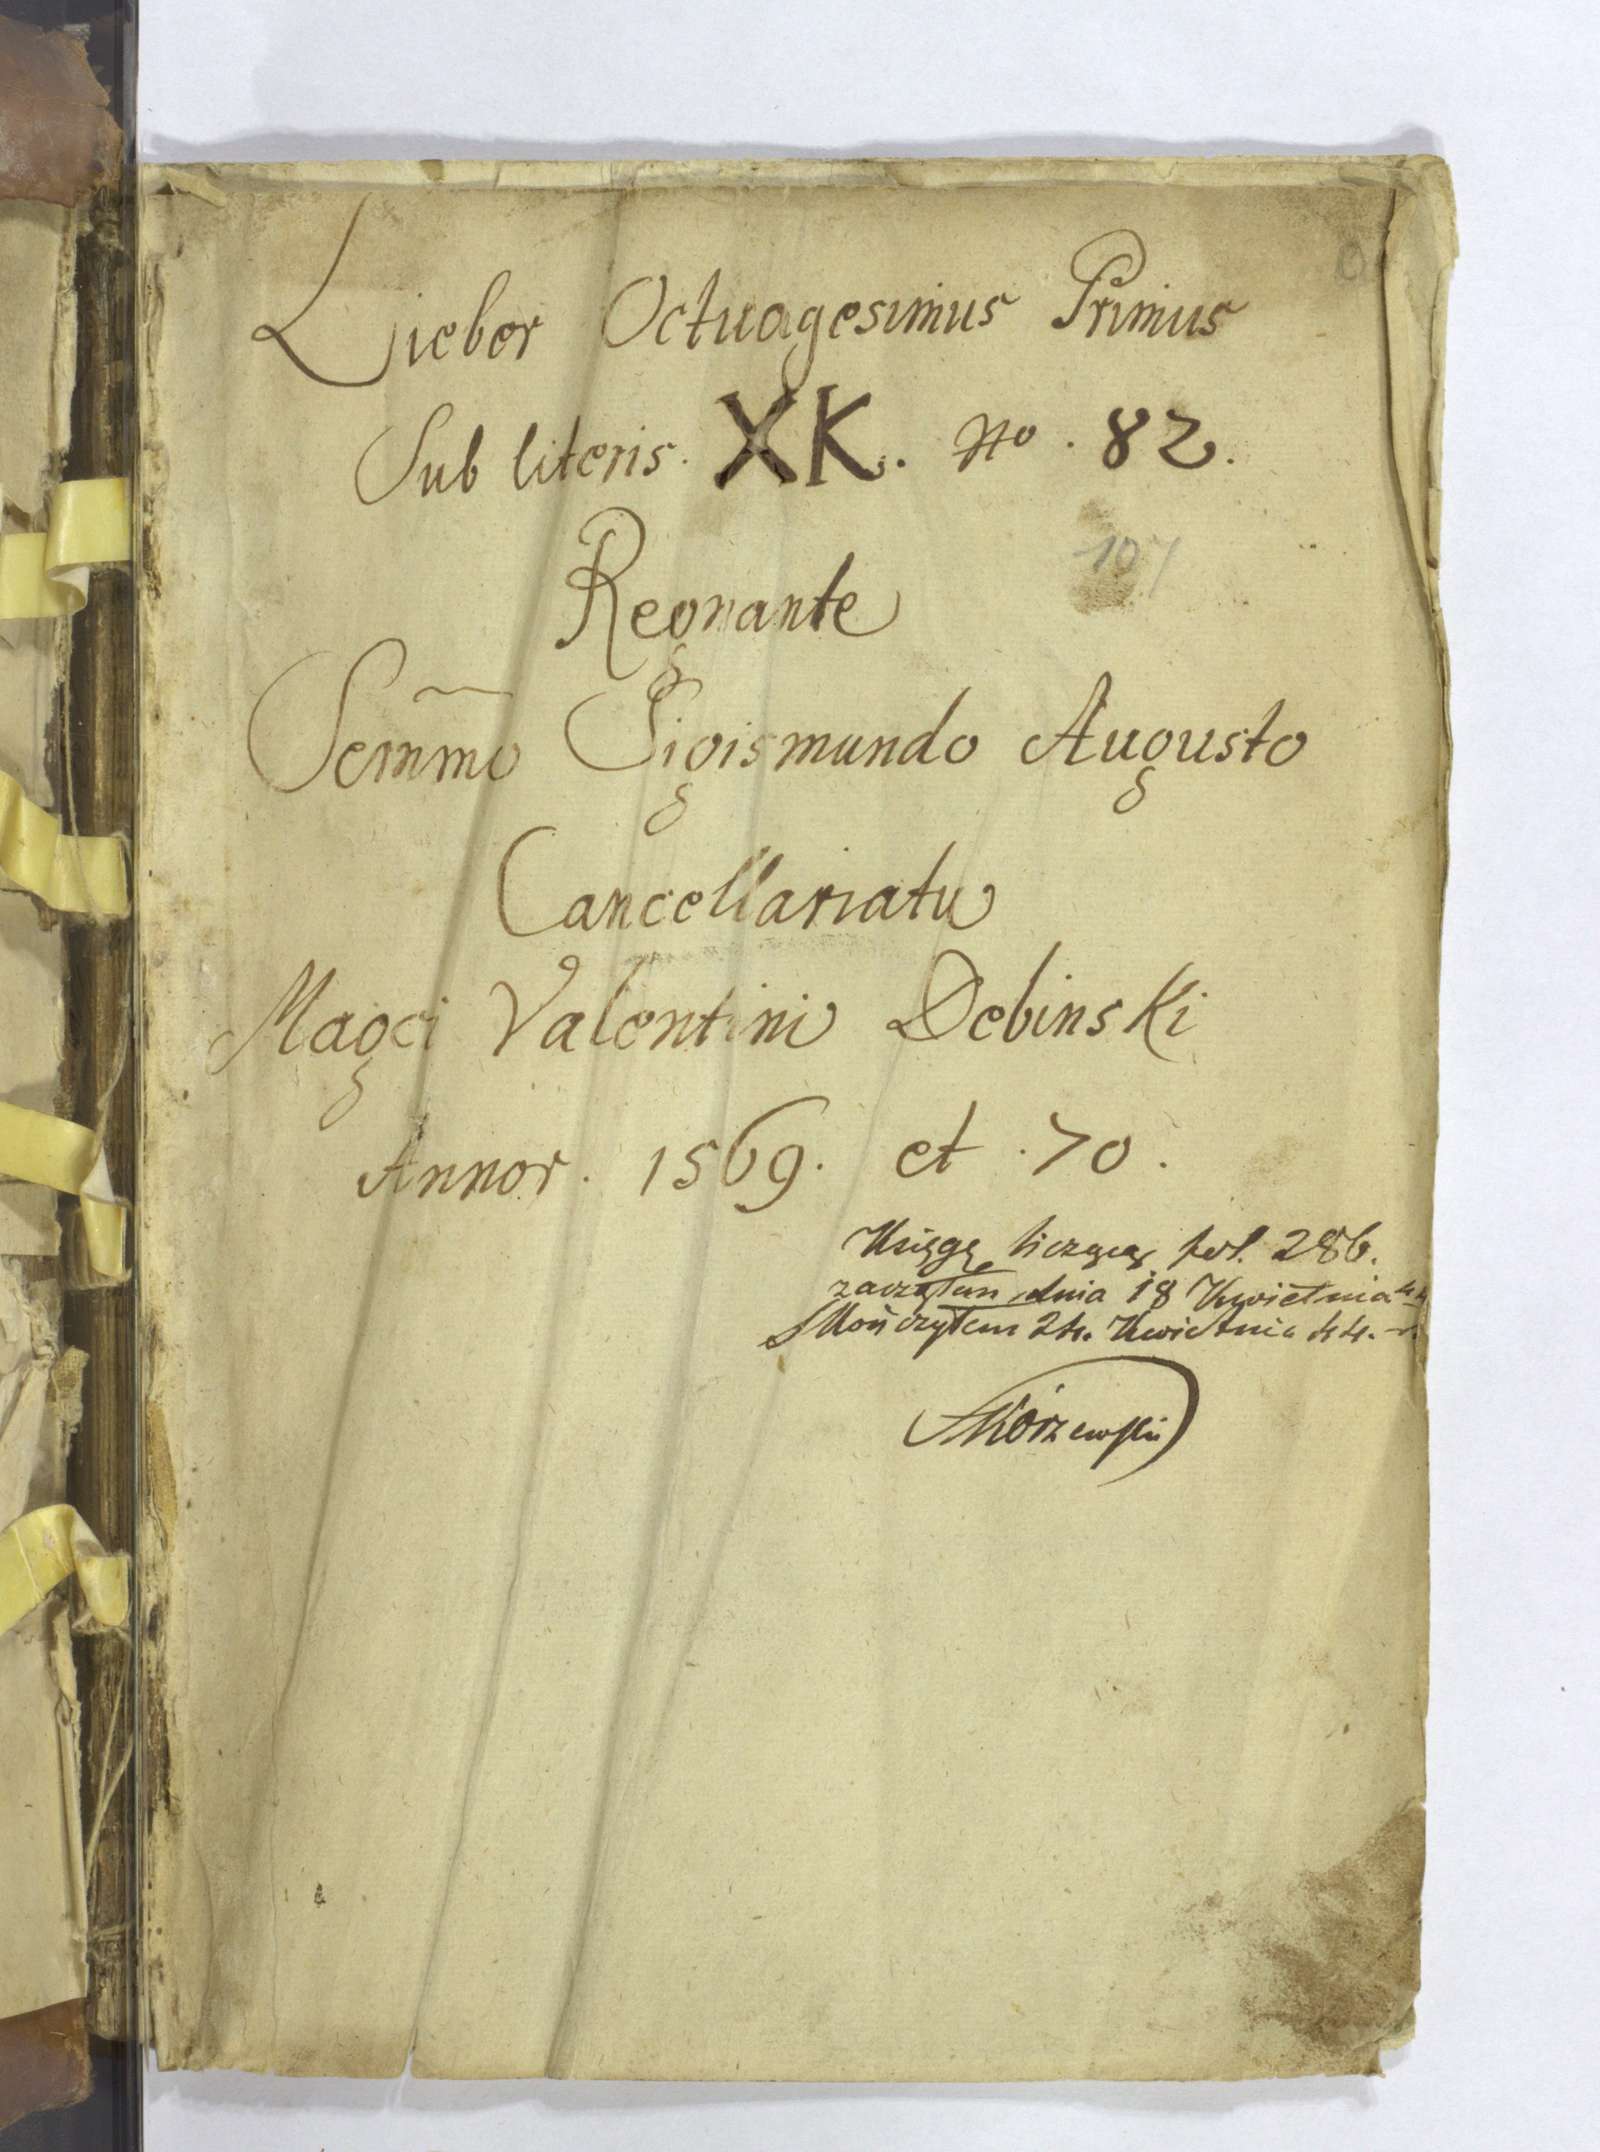 0
Lieber Octuagesimus Primus
Sub literis. XK. No. 82.
107
Regnante
Sernmo Sigismundo Augusto
Cancellariatu
Magci Valentini Debinski
Annor. 1569. et .70.
Księgę liczącą fol. 286.
zacząłem dnia 18 Kwietnia 44
Skończyłem 24. Kwietnia 44. r.
Skórzewski